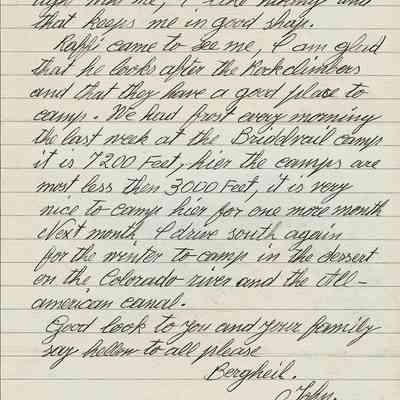 me, I like hiking and
that keeps me in good shap.
Raffi came to see me, I am glad
that he looks after the Rockclimbers
and that they have a good place to
camp. We had frost every morning
the last week at the Briddvail camp
it is 7200 Feet, hier the camps are
most less then 3000 Feet, it is very
nice to camp hier for one more month
Next month I drive south again
for the winter to camp in the dessert
on the Colorado river and the All-
american canal.
Good look to you and your family
say hellow to all please
Bergheil.
John.